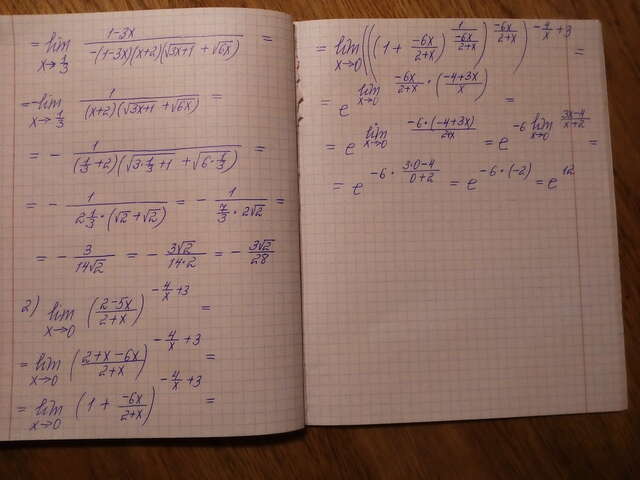 = lim x→1/3 (1-3x)/(-(1-3x)(x+2)(√(3x+1) + √(6x))) =
= -lim x→1/3 1/((x+2)(√(3x+1) + √(6x))) =
= - 1/((1/3+2)(√(3·1/3+1) + √(6·1/3))) =
= - 1/(2 1/3·(√2+√2)) = - 1/(7/3·2√2) =
= - 3/(14√2) = - 3√2/(14·2) = - 3√2/28
2) lim x→0 ((2-5x)/(2+x))^(-4/x+3) =
= lim x→0 ((2+x-6x)/(2+x))^(-4/x+3) =
= lim x→0 (1 + (-6x)/(2+x))^(-4/x+3) =
= lim x→0 (((1 + (-6x)/(2+x))^(1/((-6x)/(2+x))))^((-6x)/(2+x)))^(-4/x+3) =
= e^(lim x→0 (-6x)/(2+x)·((-4+3x)/x)) =
= e^(lim x→0 (-6·(-4+3x))/(2+x)) = e^(-6 lim x→0 (3x-4)/(x+2)) =
= e^(-6·(3·0-4)/(0+2)) = e^(-6·(-2)) = e^12